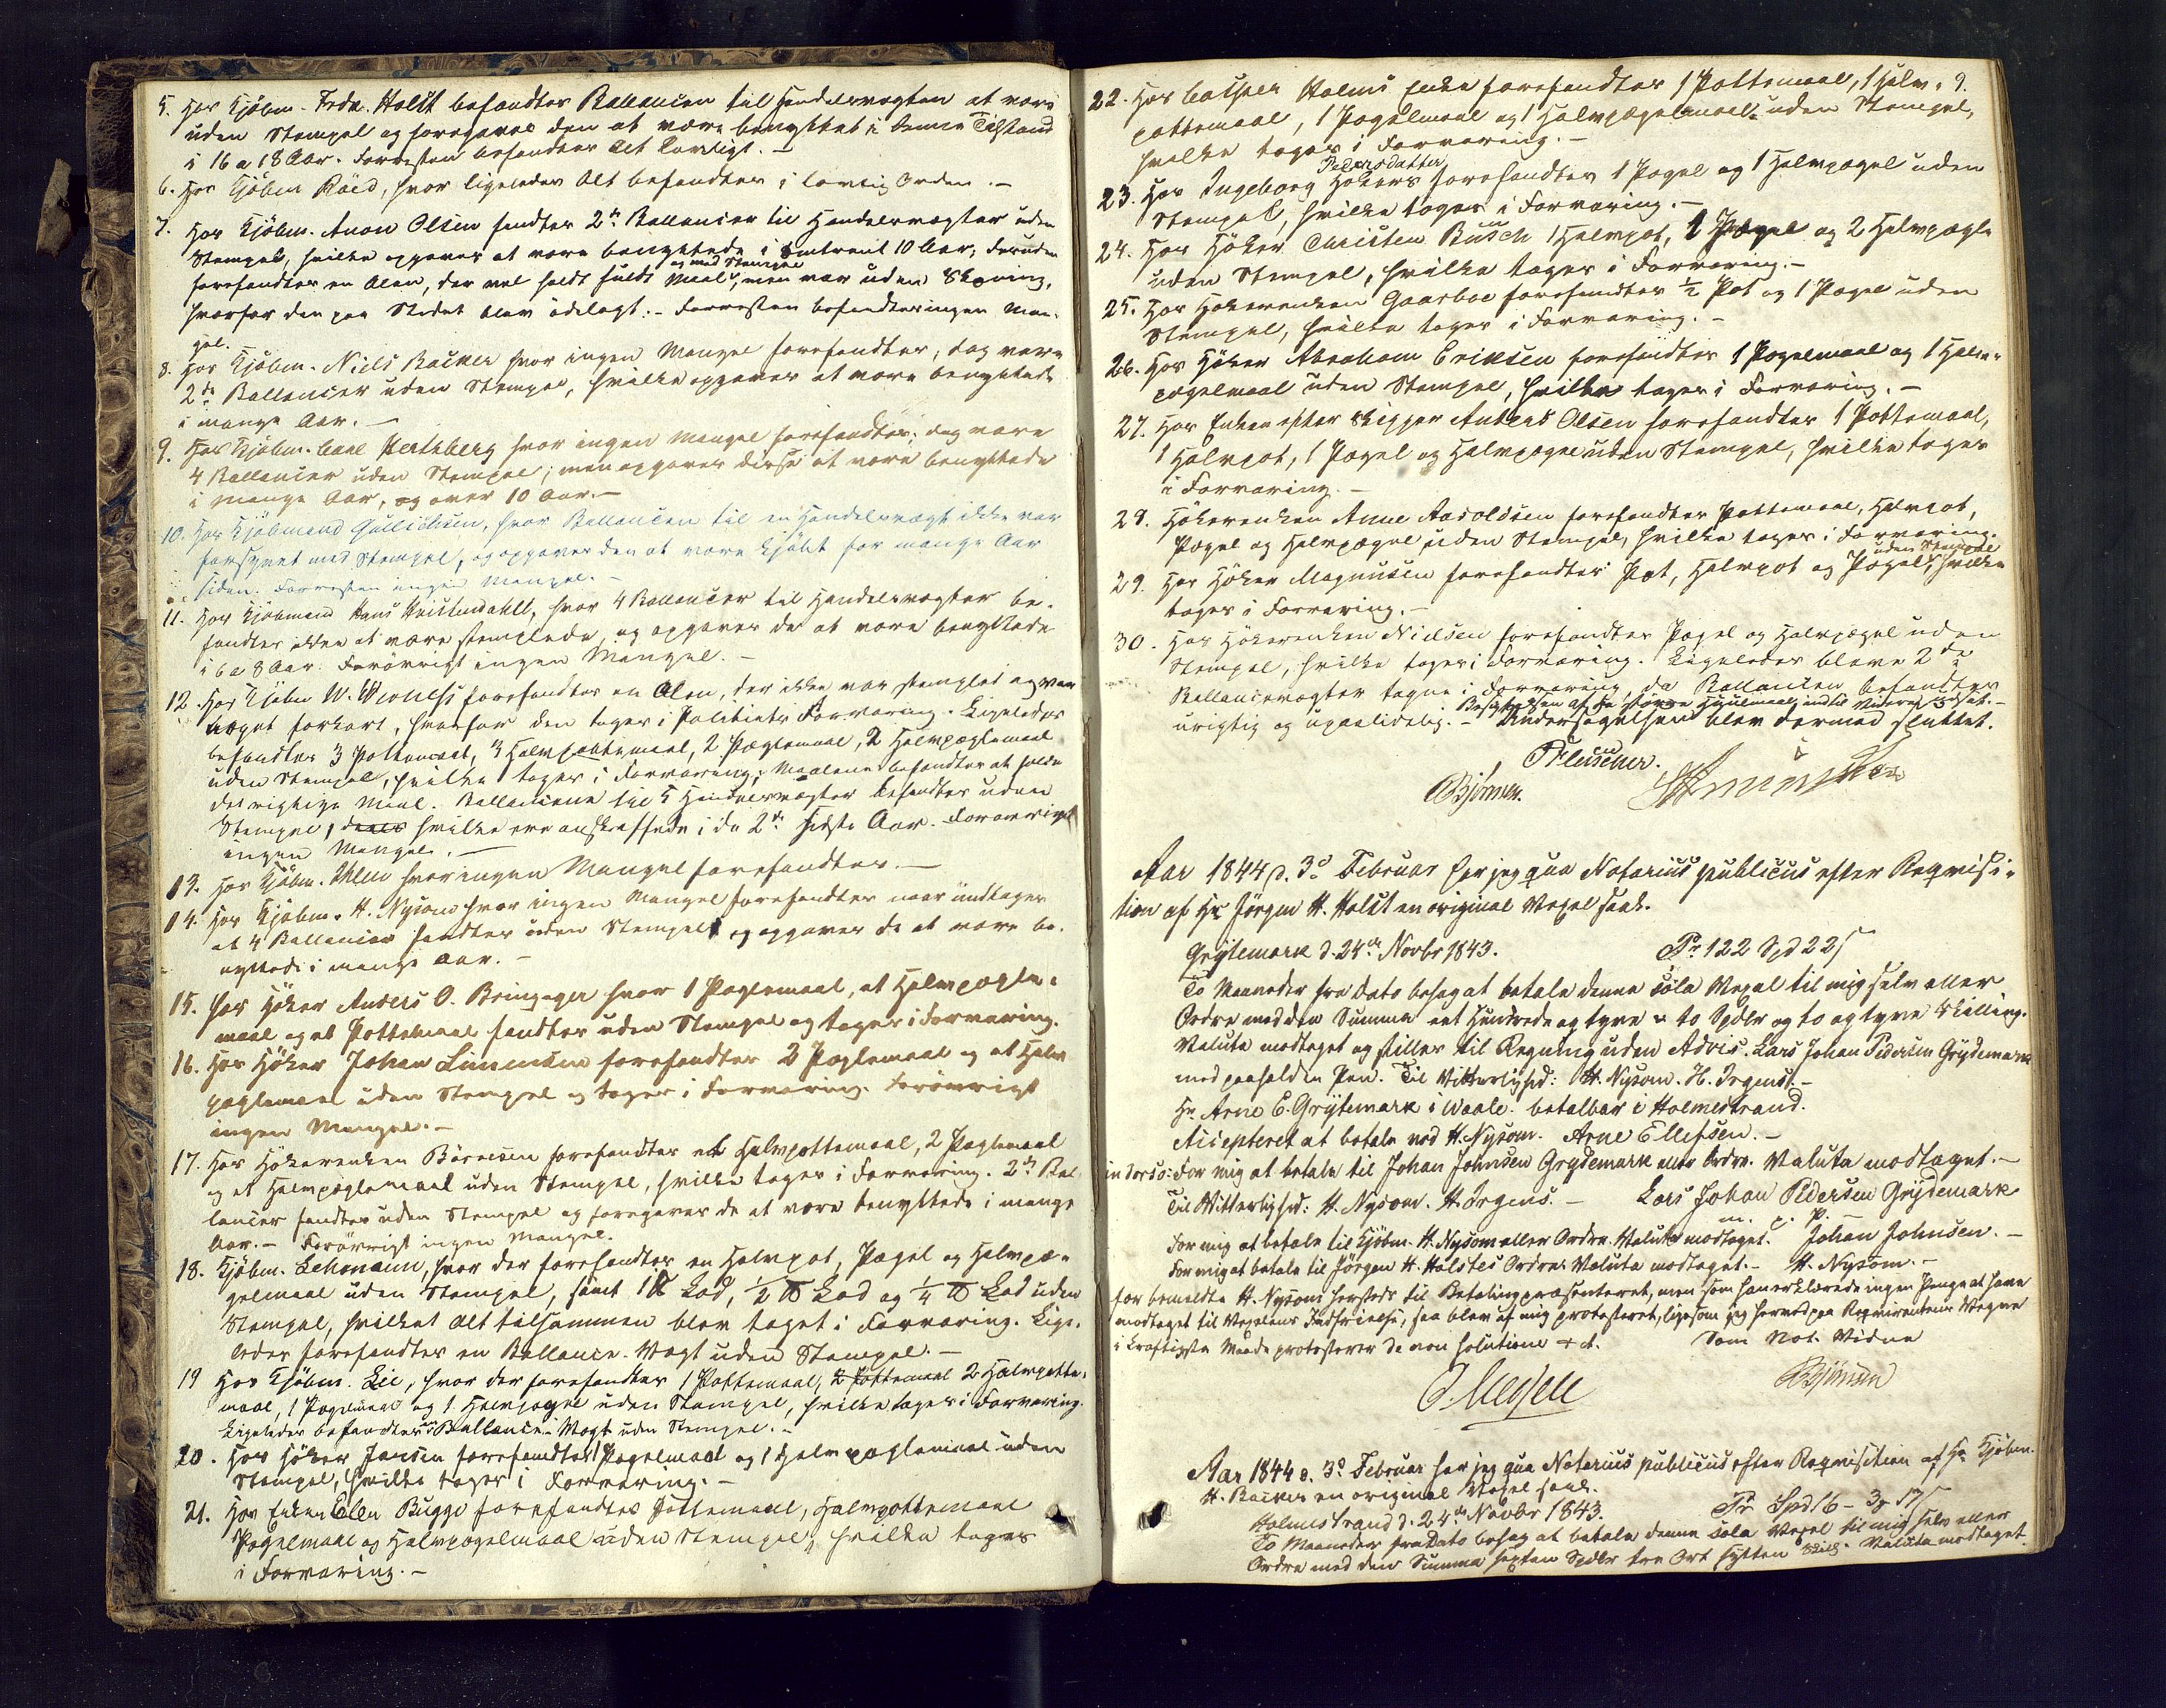 5. Hos Kjøbm. Fredr. Holst befandtes Ballancen til Handelsvægten at være
uden Stempel og foregaves den at være benyttet i denne Tilstand
i 16 a 18 Aar. Forresten befandtes Alt lovligt. -
6. Hos Kjøbm Röed, hvor ligeledes Alt befandtes i lovlig Orden. -
7. Hos Kjöbm. Anon Olsen fandtes 2de Ballancer til Handelsvægter uden
Stempel, hvilke opgaves at være benyttede i omtrent 10 Aar; desuden
og med Stempel
forefandtes en Alen, der vel holdt fuldt Maal, men var uden Skoning,
hvorfor den paa Stedet blev ödelagt. - Forresten befandtes ingen Man-
gel. -
8. Hos Kjøbm. Niels Backer hvor ingen Mangel forefandtes, dog vare
2de Ballancer uden Stempel, hvilke opgaves at være benyttede
i mange Aar. -
9. Hos Kjøbm. Carl Hertzberg hvor ingen Mangel forefandtes; dog vare
4 Ballancer uden Stempel; men opgaves disse at være benyttede
i mange Aar, og over 10 Aar. -
10. Hos Kjöbmand Gullichsen, hvor Ballancen til en Handelsvægt ikke var
forsynet med Stempel, og opgaves den at være kjöbt for mange Aar
siden. Forresten ingen Mangel. -
11. Hos Kjöbmand Hans, hvor 4 Ballancer til Handelsvægter be-
fandtes ikke at være stemplede, og opgaves de at være benyttede
i 6 a 8 Aar. Forövrigt ingen Mangel. -
12. Hos Kjöbm W. forefandtes en Alen, der ikke var stemplet og var
noget forkort, hvorfor den toges i Politiets Forvaring. Ligeledes
befandtes 3 Pottemaal, 3 Halvpottemaal, 2 Pæglemaal, 2 Halvpæglemaal
uden Stempel, hvilke toges i Forvaring; Maalene befandtes at holde
det rigtige Maal. Ballancerne til 5 Handelsvægter befandtes uden
Stempel, hvilke ere anskaffede i de 2de sidste Aar. Forøvrigt
ingen Mangel. -
13. Hos Kjøbm. hvor ingen Mangel forefandtes. -
14. Hos Kjøbm. H. Nysom hvor ingen Mangel forefandtes naar undtages
at 4 Ballancer fandtes uden Stempel og opgaves de at være be-
nyttede i mange Aar. -
15. Hos Höker Anders O. Bringager hvor 1 Pæglemaal, et Halvpægle-
maal og et Pottemaal fandtes uden Stempel og toges i Forvaring.
16. Hos Höker Johan forefandtes 2 Pæglemaal og et Halv
pæglemaal uden Stempel og toges i Forvaring. Forövrigt
ingen Mangel. -
17. Hos Hökerenken Börresen forefandtes et Halvpottemaal, 2 Pæglemaal
og et Halvpæglemaal uden Stempel, hvilke toges i Forvaring. 2de Bal-
lancer fandtes uden Stempel og foregaves de at være benyttede i mange
Aar. - Forövrigt ingen Mangel.
18. Kjøbm. Lehmann, hvor der forefandtes en Halvpot, Pægel og Halvpæ-
gelmaal uden Stempel, samt 1 ℔ Lod, ½ ℔ Lod og ¼ ℔ Lod uden
Stempel, hvilket Alt tilsammen blev taget i Forvaring. Lige-
ledes forefandtes en Ballance-Vægt uden Stempel. -
19 Hos Kjöbm. Lie, hvor der forefandtes 1 Pottemaal, 2 Pottemaal 2 Halvpotte-
maal, 1 Pægelmaal og 1 Halvpægel uden Stempel, hvilke toges i Forvaring.
Ligeledes befandtes Ballance-Vægt uden Stempel. -
20. Hos Höker Jansen forefandtes 1 Pægelmaal og 1 Halvpæglemaal uden
Stempel, hvilke toges i Forvaring. -
21. Hos Enken Elen Bugge forefandtes Pottemaal, Halvpottemaal
Pægelmaal og Halvpægelmaal uden Stempel, hvilke toges
i Forvaring. -
9.
22. Hos Casper Holms Enke forefandtes 1 Pottemaal, 1 Halv-
pottemaal, 1 Pægelmaal og 1 Halvpægelmaal uden Stempel,
hvilke toges i Forvaring. -
Pedersdatter
23. Hos Ingeborg Hökers forefandtes 1 Pægel og 1 Halvpægel uden
Stempel, hvilke toges i Forvaring. -
24. Hos Höker Christen Busch 1 Halvpot, 1 Pægel og 2 Halvpægle
uden Stempel, hvilke toges i Forvaring. -
25. Hos Hökerenken Gaarboe forefandtes ½ Pot og 1 Pægel uden
Stempel, hvilke toges i Forvaring. -
26. Hos Höker Abraham Eriksen forefandtes 1 Pægelmaal og 1 Halv-
pægelmaal uden Stempel, hvilke toges i Forvaring. -
27. Hos Enken efter Skipper Anders Olsen forefandtes 1 Pottemaal,
1 Halvpot, 1 Pægel og Halvpægel uden Stempel, hvilke toges
i Forvaring. -
28. Hökerenken Anne Aasoldsen forefandtes Pottemaal, Halvpot,
Pægel og Halvpægel uden Stempel, hvilke toges i Forvaring.
uden Stempel
29. Hos Höker Magnussen forefandtes Pot, Halvpot og Pægel, hvilke
toges i Forvaring. -
30. Hos Hökerenken Nielsen forefandtes Pægel og Halvpægel uden
Stempel, hvilke toges i Forvaring. Ligeledes bleve 2de
Ballancevægter tagne i Forvaring, da Ballancen befandtes
Besigtelsen af de större Hjulmaal indtil Videre udsat. -
urigtig og upaalidelig. - Undersögelsen blev dermed sluttet.
Fluscher.
Björnsen.
Aar 1844 d. 3d Februar har jeg qua Notarius publicus efter Reqvisi-
tion af Hr Jörgen H. Holst en original Vexel saal.
Grytemark d. 24de Novbr 1843. Pr 122 Spd 22 s
To Maaneder fra Dato behag at betale denne sola Vexel til mig selv eller
Ordre med den Summa eet Hundrede og tyve - to Spdlr og to og tyve Skilling.
Valuta modtaget og stilles til Regning uden Advis. Lars Johan Pedersen Grydemark
med paaholden Pen. Til Vitterlighed: H. Nysom. H. Irgens. -
Hr. Arne E. Grytemark i Waale. betalbar i Holmestrand.
Accepteret at betale ved H. Nysom. Arne Ellefsen. -
in dorso: For mig at betale til Johan Johnsen Grydemark eller Ordre. Valuta modtaget. -
Til Vitterlighed: H. Nysom. H. Irgens. - Lars Johan Pedersen Grydemark
m. p. P.
For mig at betale til Kjöbm. H. Nysom eller Ordre. Valuta modtaget. Johan Johnsen. -
For mig at betale til Jörgen H. Holstes Ordre. Valuta modtaget. - H. Nysom. -
for bemeldte H. Nysom hersteds til Betaling præsenteret, men som han erklærede ingen Penge at have
modtaget til Vexelens Indfrielse, saa blev af mig protesteret, ligesom jeg herved paa Reqvirentens Vegne
i kraftigste Maade protesterer de non solutione & ct. Som Not. Vidne
Björnsen
Aar 1844 d. 3d Februar har jeg qua Notarius publicus efter Reqvisition af Hr Kjöbm.
N. Backer en original Vexel saal.
Holmestrand d. 24de Novbr 1843. Pr Spd 16 - 3 17 s
To Maaneder fra Dato behag at betale denne sola Vexel til mig selv eller
Ordre med den Summa sexten Spdlr tre Ort sytten Skill. Valuta modtaget